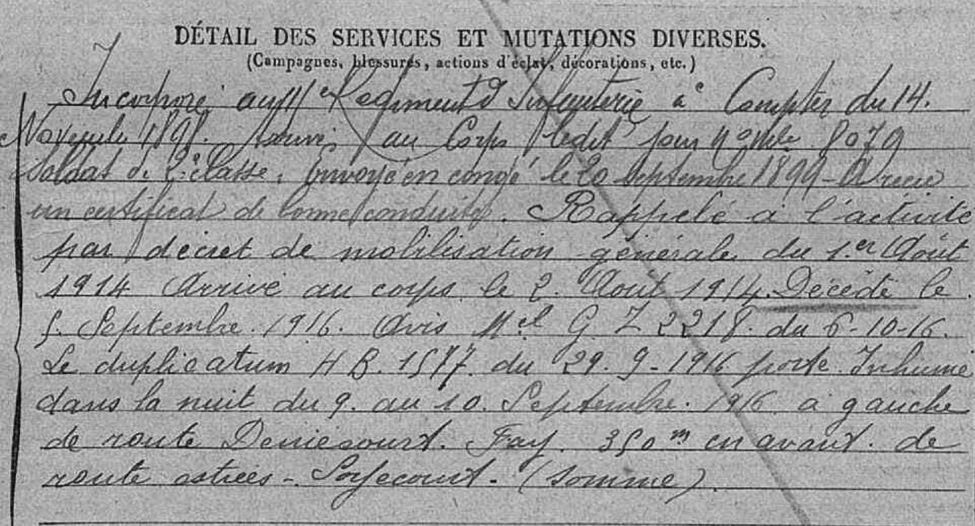 DÉTAIL DES SERVICES ET MUTATIONS DIVERSES.
(Campagnes, blessures, actions d'éclat, décorations, etc.)
Incorporé au Régiment d'Infanterie à Compter du 14.
Novembre 189 au Corps ledit jour nº Mle 8079
Soldat de 2e classe. Envoyé en congé le 20 Septembre 1899 - A reçu
un certificat de bonne conduite. Rappelé à l'activité
par décret de mobilisation générale du 1.er Août
1914 Arrivé au corps le 2. Août 1914. Décédé le
5. Septembre. 1916. Avis Mel G Z 2218. du 6-10-16.
Le duplicatum H B. 1577. du 29. 9-1916 porte. Inhumé
dans la nuit du 9. au 10. Septembre. 1916 a gauche
de route Deniécourt. Fay. 350m en avant. de
route estrées - Soyecourt - (Somme).